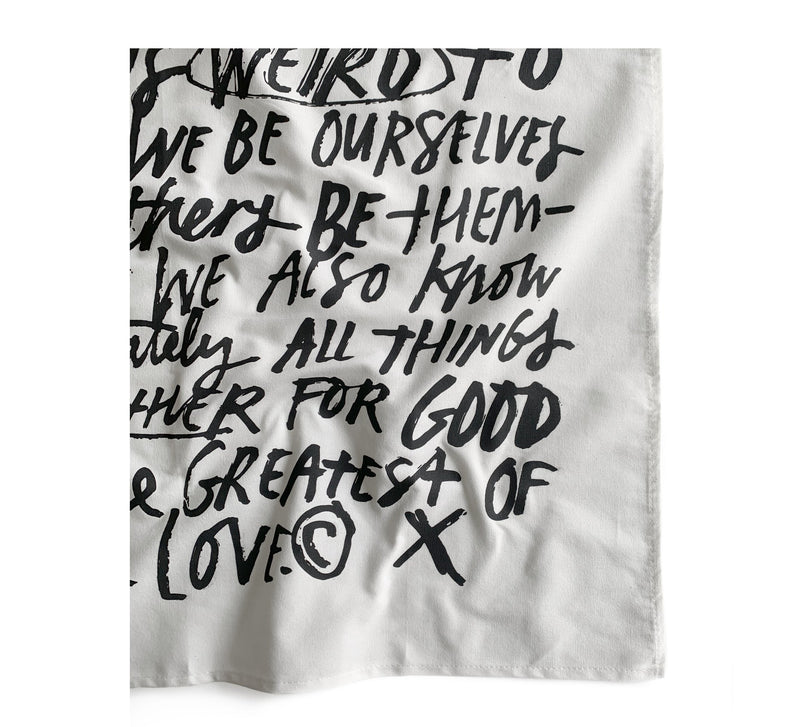 WEIRD TO
WE BE OURSELVES
thers BE THEM-
WE ALSO KNOW
ately ALL THINGS
THER FOR GOOD
e GREATEST OF
LOVE.© X